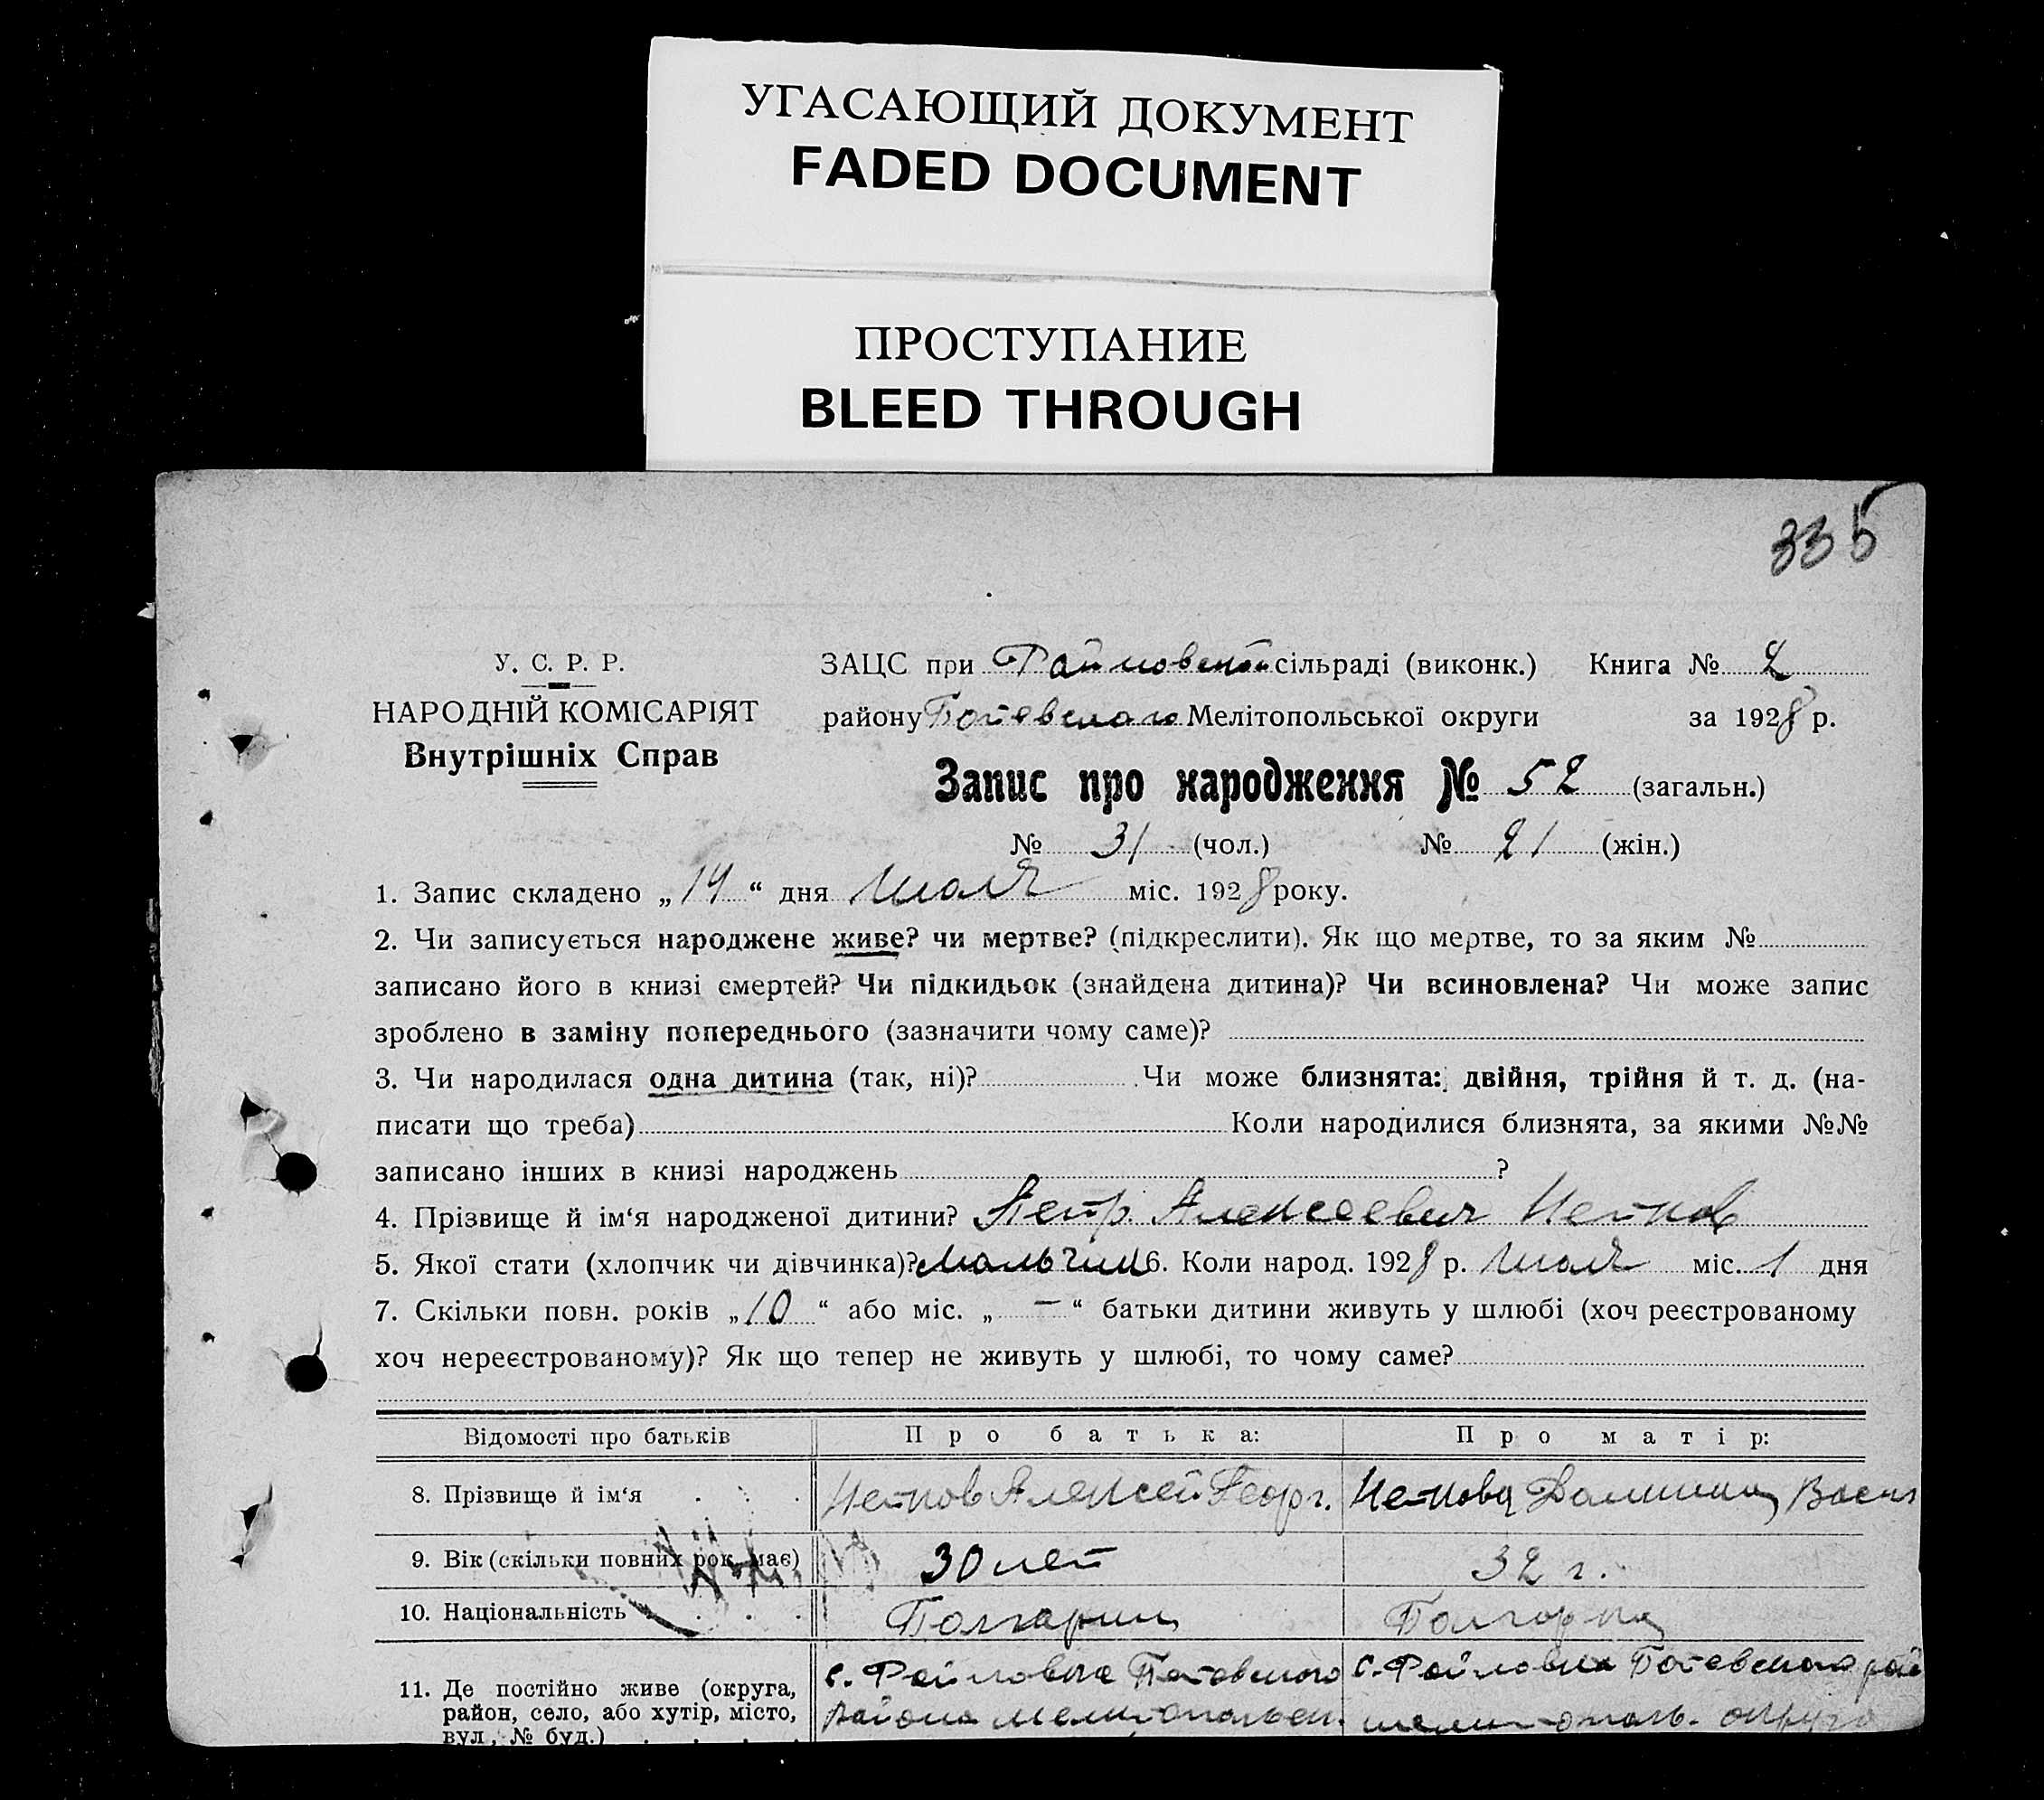 УГАСАЮЩИЙ ДОКУМЕНТ
FADED DOCUMENT
ПРОСТУПАНИЕ
BLEED THROUGH
335
У. С. Р. Р.
НАРОДНІЙ КОМІСАРІЯТ
Внутрішніх Справ
ЗАЦС при Райновской сільраді (виконк.) Книга № 2
району Ботевского Мелітопольської округи за 1928 р.
Запис про народження № 52 (загальн.)
№ 31 (чол.) № 21 (жін.)
1. Запис складено „14“ дня Июля міс. 1928 року.
2. Чи записується народжене живе? чи мертве? (підкреслити). Як що мертве, то за яким №
записано його в книзі смертей? Чи підкидьок (знайдена дитина)? Чи всиновлена? Чи може запис
зроблено в заміну попереднього (зазначити чому саме)?
3. Чи народилася одна дитина (так, ні)? Чи може близнята: двійня, трійня й т. д. (на-
писати що треба) Коли народилися близнята, за якими №№
записано інших в книзі народжень ?
4. Прізвище й ім‘я народженої дитини? Петр Алексеевич Нетков
5. Якої стати (хлопчик чи дівчинка)? Мальчик 6. Коли народ. 1928 р. Июля міс. 1 дня
7. Скільки повн. років „10“ або міс. „—“ батьки дитини живуть у шлюбі (хоч реєстрованому
хоч нереєстрованому)? Як що тепер не живуть у шлюбі, то чому саме?
Відомості про батьків Про батька: Про матір:
8. Прізвище й ім‘я . . . Нетков Алексей Георг. Неткова Васил
9. Вік (скільки повних рок. має) 30 лет 32 г.
10. Національність . . . . Болгарин Болгарка
11. Де постійно живе (округа, с. Райновка Ботевского с. Райновка Ботевского рай
район, село, або хутір, місто, района Мелитопольск. мелитополь. округа
вул., № буд.) . . . .